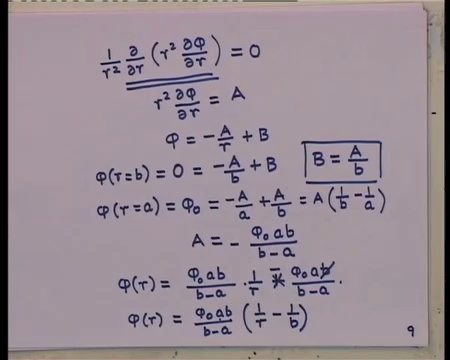 1/r² ∂/∂r (r² ∂φ/∂r) = 0
r² ∂φ/∂r = A
φ = -A/r + B
φ(r=b) = 0 = -A/b + B    B = A/b
φ(r=a) = φ₀ = -A/a + A/b = A(1/b - 1/a)
A = - φ₀ab/b-a
φ(r) = φ₀ab/b-a · 1/r - φ₀ab/b-a .
φ(r) = φ₀ab/b-a (1/r - 1/b)
9